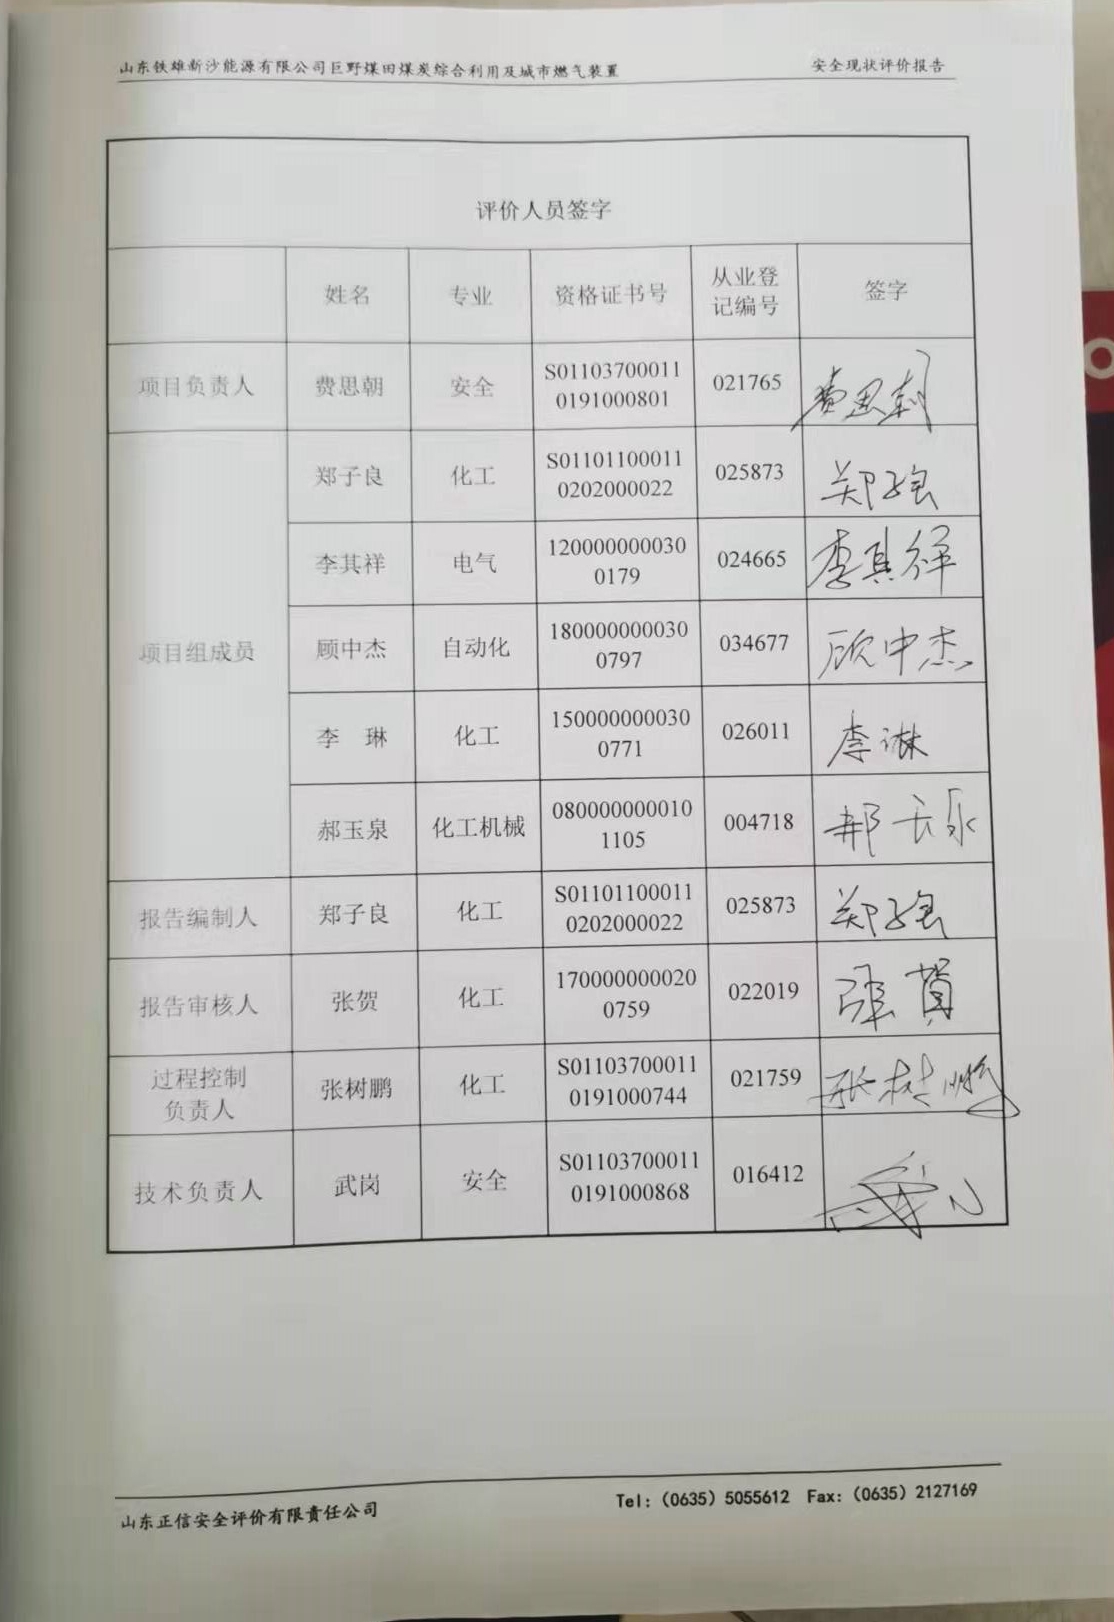 山东铁雄新沙能源有限公司巨野煤田煤炭综合利用及城市燃气装置 安全现状评价报告
评价人员签字
姓名 专业 资格证书号 从业登
记编号 签字
项目负责人 费思朝 安全 S01103700011
0191000801 021765 费思朝
项目组成员
郑子良 化工 S01101100011
0202000022 025873 郑子良
李其祥 电气 120000000030
0179 024665 李其祥
顾中杰 自动化 180000000030
0797 034677 顾中杰
李 琳 化工 150000000030
0771 026011 李琳
郝玉泉 化工机械 080000000010
1105 004718 郝玉泉
报告编制人 郑子良 化工 S01101100011
0202000022 025873 郑子良
报告审核人 张贺 化工 170000000020
0759 022019 张贺
过程控制
负责人 张树鹏 化工 S01103700011
0191000744 021759 张树鹏
技术负责人 武岗 安全 S01103700011
0191000868 016412
山东正信安全评价有限责任公司 Tel:(0635)5055612 Fax:(0635)2127169